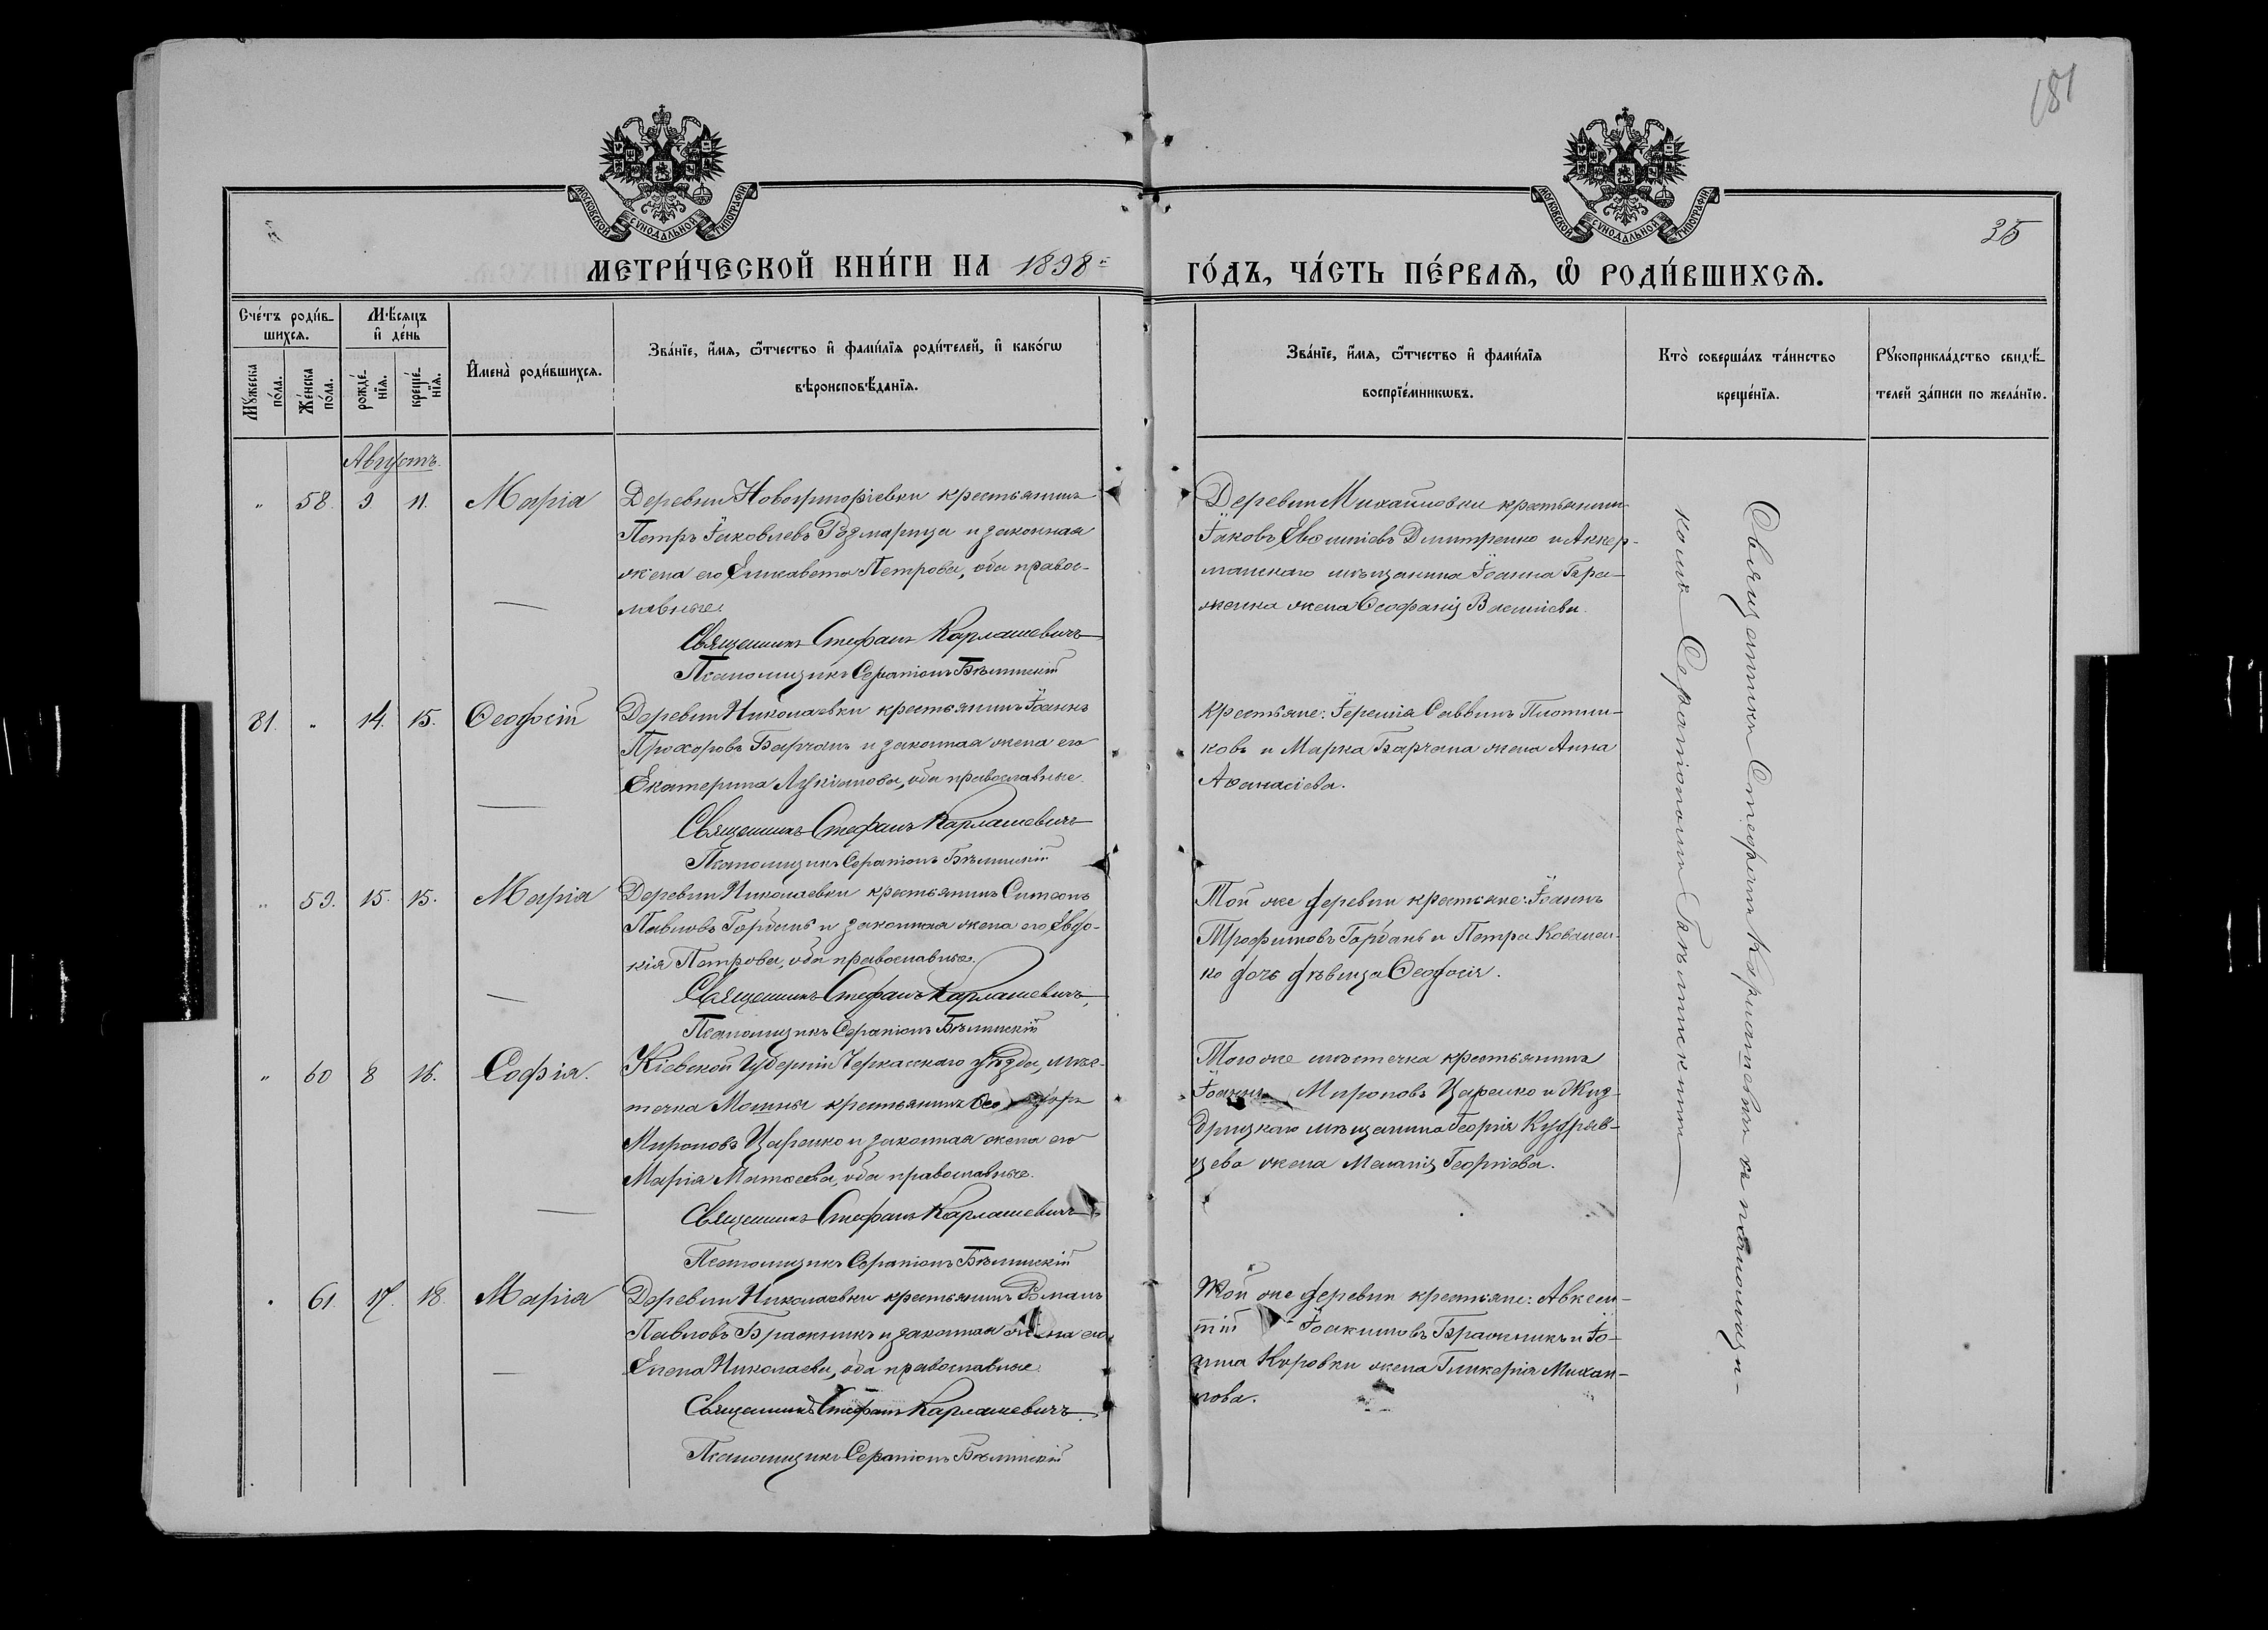 181
35
МОСКОВСКОЙ СУНОДАЛЬНОЙ ТИПОГРАФІИ
МОСКОВСКОЙ СУНОДАЛЬНОЙ ТИПОГРАФІИ
МЕТРИ́ЧЕСКОЙ КНИ́ГИ НА 1898-
ГО́ДЪ, ЧА́СТЬ ПЕ́РВАЯ, Ѡ҆ РОДИ́ВШИХСЯ.
Сче́тъ роди́в-
шихся.
Мꙋ́жеска
по́ла.
Же́нска
по́ла.
Мѣ́сяцъ
и҆ де́нь
рожде́-
нїя.
креще́-
нїя.
И҆мена̀ роди́вшихся.
Зва́нїе, и҆́мя, ѻ҆́тчество и҆ фами́лїя роди́телей, и҆ како́гѡ
вѣроисповѣ́данїя.
Зва́нїе, и҆́мя, ѻ҆́тчество и҆ фами́лїя
воспрїе́мникѡвъ.
Кто̀ соверша́лъ та́инство
креще́нїя.
Рꙋкоприкла́дство свидѣ́-
телей за́писи по жела́нїю.
Августъ.
" 58. 9. 11. Марія
Деревни Новогригоріевки крестьянинъ
Петръ Іаковлевъ Розмарица и законная
жена его Елисавета Петрова, оба правос-
лавные.
Священникъ Стефанъ Карлашевичъ
Псаломщикъ Серапіонъ Бѣлинскій
Деревни Михайловки крестьянинъ
Іаковъ Дмитренко и Аккер-
манскаго мѣщанина Іоанна Гера-
жена Ѳеофанія Василіева.
81. " 14. 15. Ѳеодосій
Деревни Николаевки крестьянинъ Іоаннъ
Прохоровъ Барчанъ и законная жена его
Екатерина Лукіанова, оба православные.
Священникъ Стефанъ Карлашевичъ
Псаломщикъ Серапіонъ Бѣлинскій
Крестьяне: Іеремія Саввинъ Плотни-
ковъ и Марка Барчана жена Анна
Аѳанасіева.
" 59. 15. 15. Марія
Деревни Николаевки крестьянинъ Симеонъ
Павловъ Горбань и законная жена его Евдо-
кія Петрова, оба православные.
Священникъ Стефанъ Карлашевичъ
Псаломщикъ Серапіонъ Бѣлинскій
Той же деревни крестьяне: Іоаннъ
Трофимовъ Горбань и Петра Ковален-
ко дочь дѣвица Ѳеодосія.
" 60 8 16. Софія.
Кіевской Губерніи Черкасскаго уѣзда, мѣс-
течка Мошны крестьянинъ Ѳеодоръ
Мироновъ Царенко и законная жена его
Марія Матѳеева, оба православные.
Священникъ Стефанъ Карлашевичъ
Псаломщикъ Серапіонъ Бѣлинскій
Того же мѣстечка крестьянинъ
Іоаннъ Мироновъ Царенко и Жиз-
дрицкаго мѣщанина Георгія Кудряв-
цева жена Меланія Георгіева.
" 61. 17. 18. Марія
Деревни Николаевки крестьянинъ Романъ
Павловъ Бражникъ и законная жена его
Елена Николаева, оба православные.
Священникъ Стефанъ Карлашевичъ
Псаломщикъ Серапіонъ Бѣлинскій
Той же деревни крестьяне: Авксен-
тій Іоакимовъ Бражникъ и Іо-
анна Коровки жена Гликерія Михаи-
лова.
Священникъ Стефанъ Карлашевичъ съ псаломщи-
комъ Серапіономъ Бѣлинскимъ